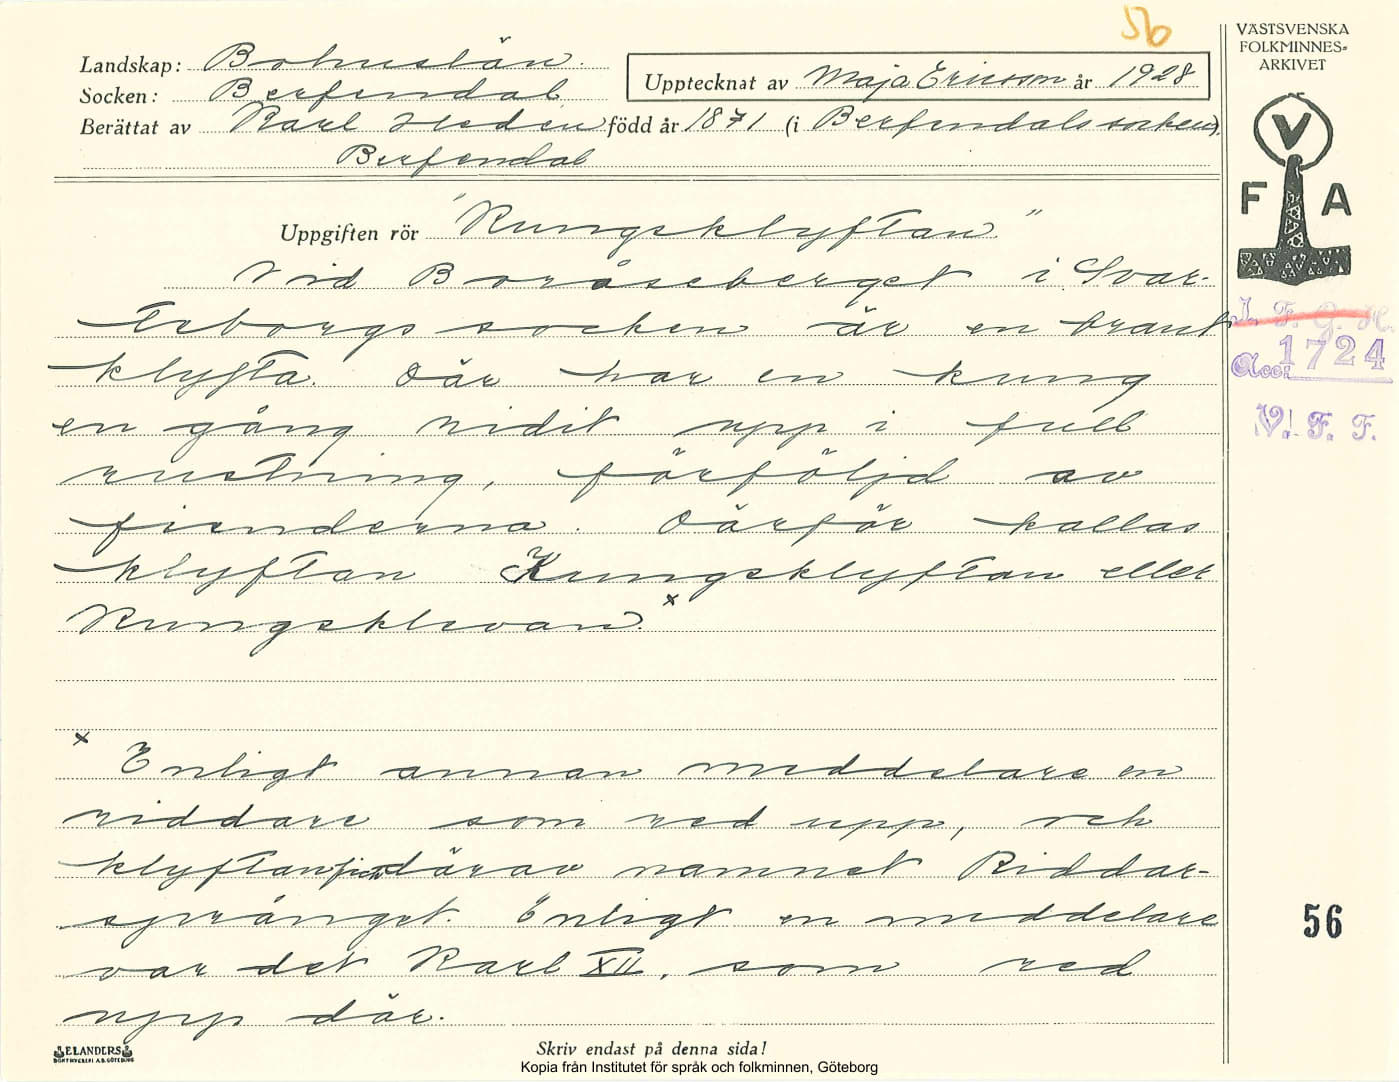 56
VÄSTSVENSKA
FOLKMINNES-
ARKIVET
Landskap: Bohuslän.
Socken: Berfendal
Upptecknat av Maja Ericson år 1928
Berättat av Karl Hedén född år 1871 (i Berfendals socken).
Berfendal
V
F A
Uppgiften rör "Kungsklyftan"
Vid Boråseberget i Svar-
teborgs socken är en brant
klyfta. Där har en kung
en gång ridit upp i full
rustning, förföljd av
fienderna. Därför kallas
klyftan Kungsklyftan eller
Kungsklevan.x
I. F. G. H.
Acc. 1724
V. F. F.
x Enligt annan meddelare en
riddare som red upp, och
klyftan fick därav namnet Riddar-
språnget. Enligt en meddelare
var det Karl XII, som red
upp där.
56
ELANDERS
BOKTRYCKERI A.B. GÖTEBORG
Skriv endast på denna sida!
Kopia från Institutet för språk och folkminnen, Göteborg